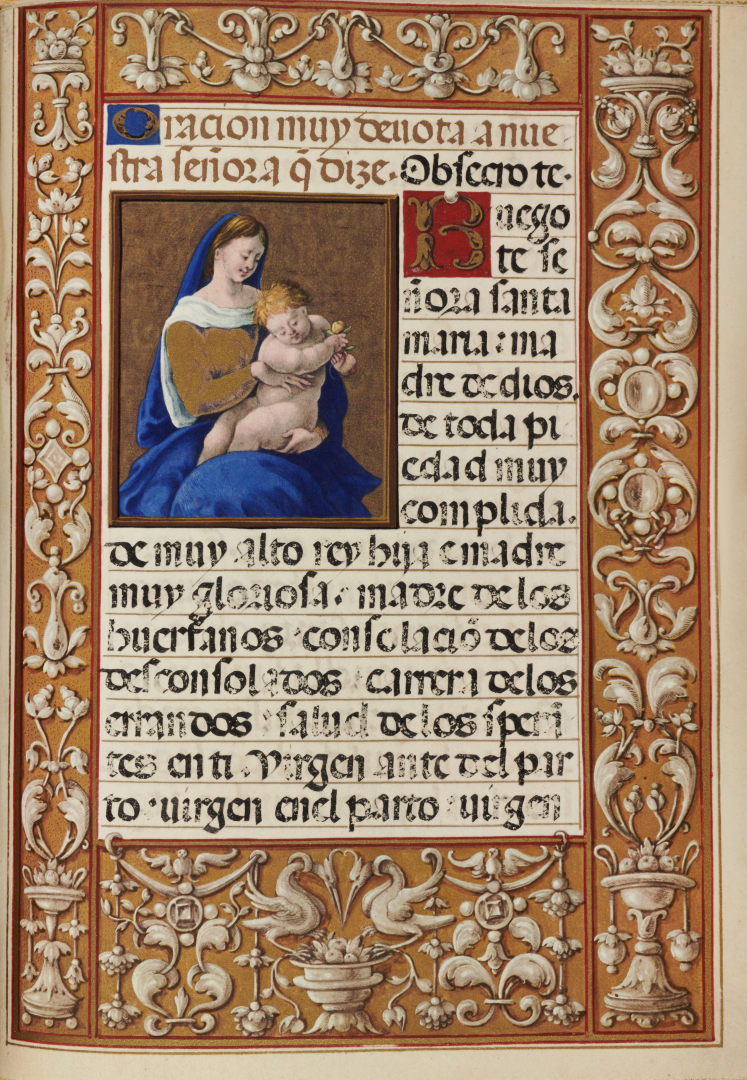 Oracion muy deuota a nue
stra señora q̃ dize. Obsecro te.
Ruego
te se
ñora santa
maria : ma
dre de dios.
de toda pi
edad muy
complida.
de muy alto rey hija e madre
muy gloriosa. madre de los
huerfanos · consolaciõ de los
desconsolados · carrera de los
errandos : salud de los sperã
tes en ti. Virgen ante del par
to · uirgen enel parto · uirgen